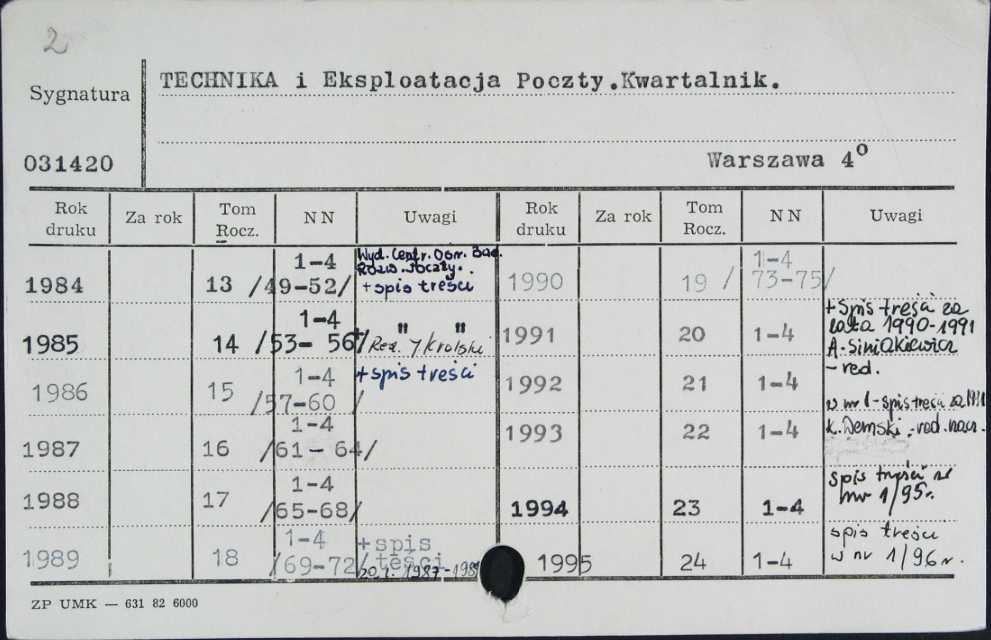 2
TECHNIKA i Eksploatacja Poczty.Kwartalnik.
Sygnatura
031420
Warszawa 4o
Rok druku Za rok Tom Rocz. NN Uwagi Rok druku Za rok Tom Rocz. NN Uwagi
1984 13 1-4 /49-52/ Wyd. Centr. Ośr. Bad. Rozw. Poczty. + spis treści
1985 14 1-4 /53- 56/ " " Red.
1986 15 1-4 /57-60 / + spis treści
1987 16 1-4 /61- 64/
1988 17 1-4 /65-68/
1989 18 1-4 /69-72/ +spis teści
1990 19 / 1-4 73-75/
1991 20 1-4 + Spis treści za lata 1990-1991 A. Siniakiewicz - red.
1992 21 1-4 w nr 1 - spis treści za
1993 22 1-4 K. Demski - red. nacz.
1994 23 1-4 spis treści w nr 1/95r.
1995 24 1-4 spis treści w nr 1/96r.
ZP UMK — 631 82 6000